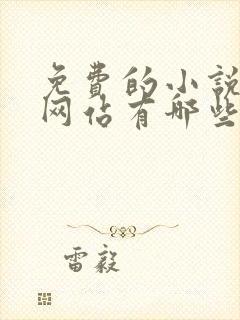 免费的小说
网站有哪些
雷毅